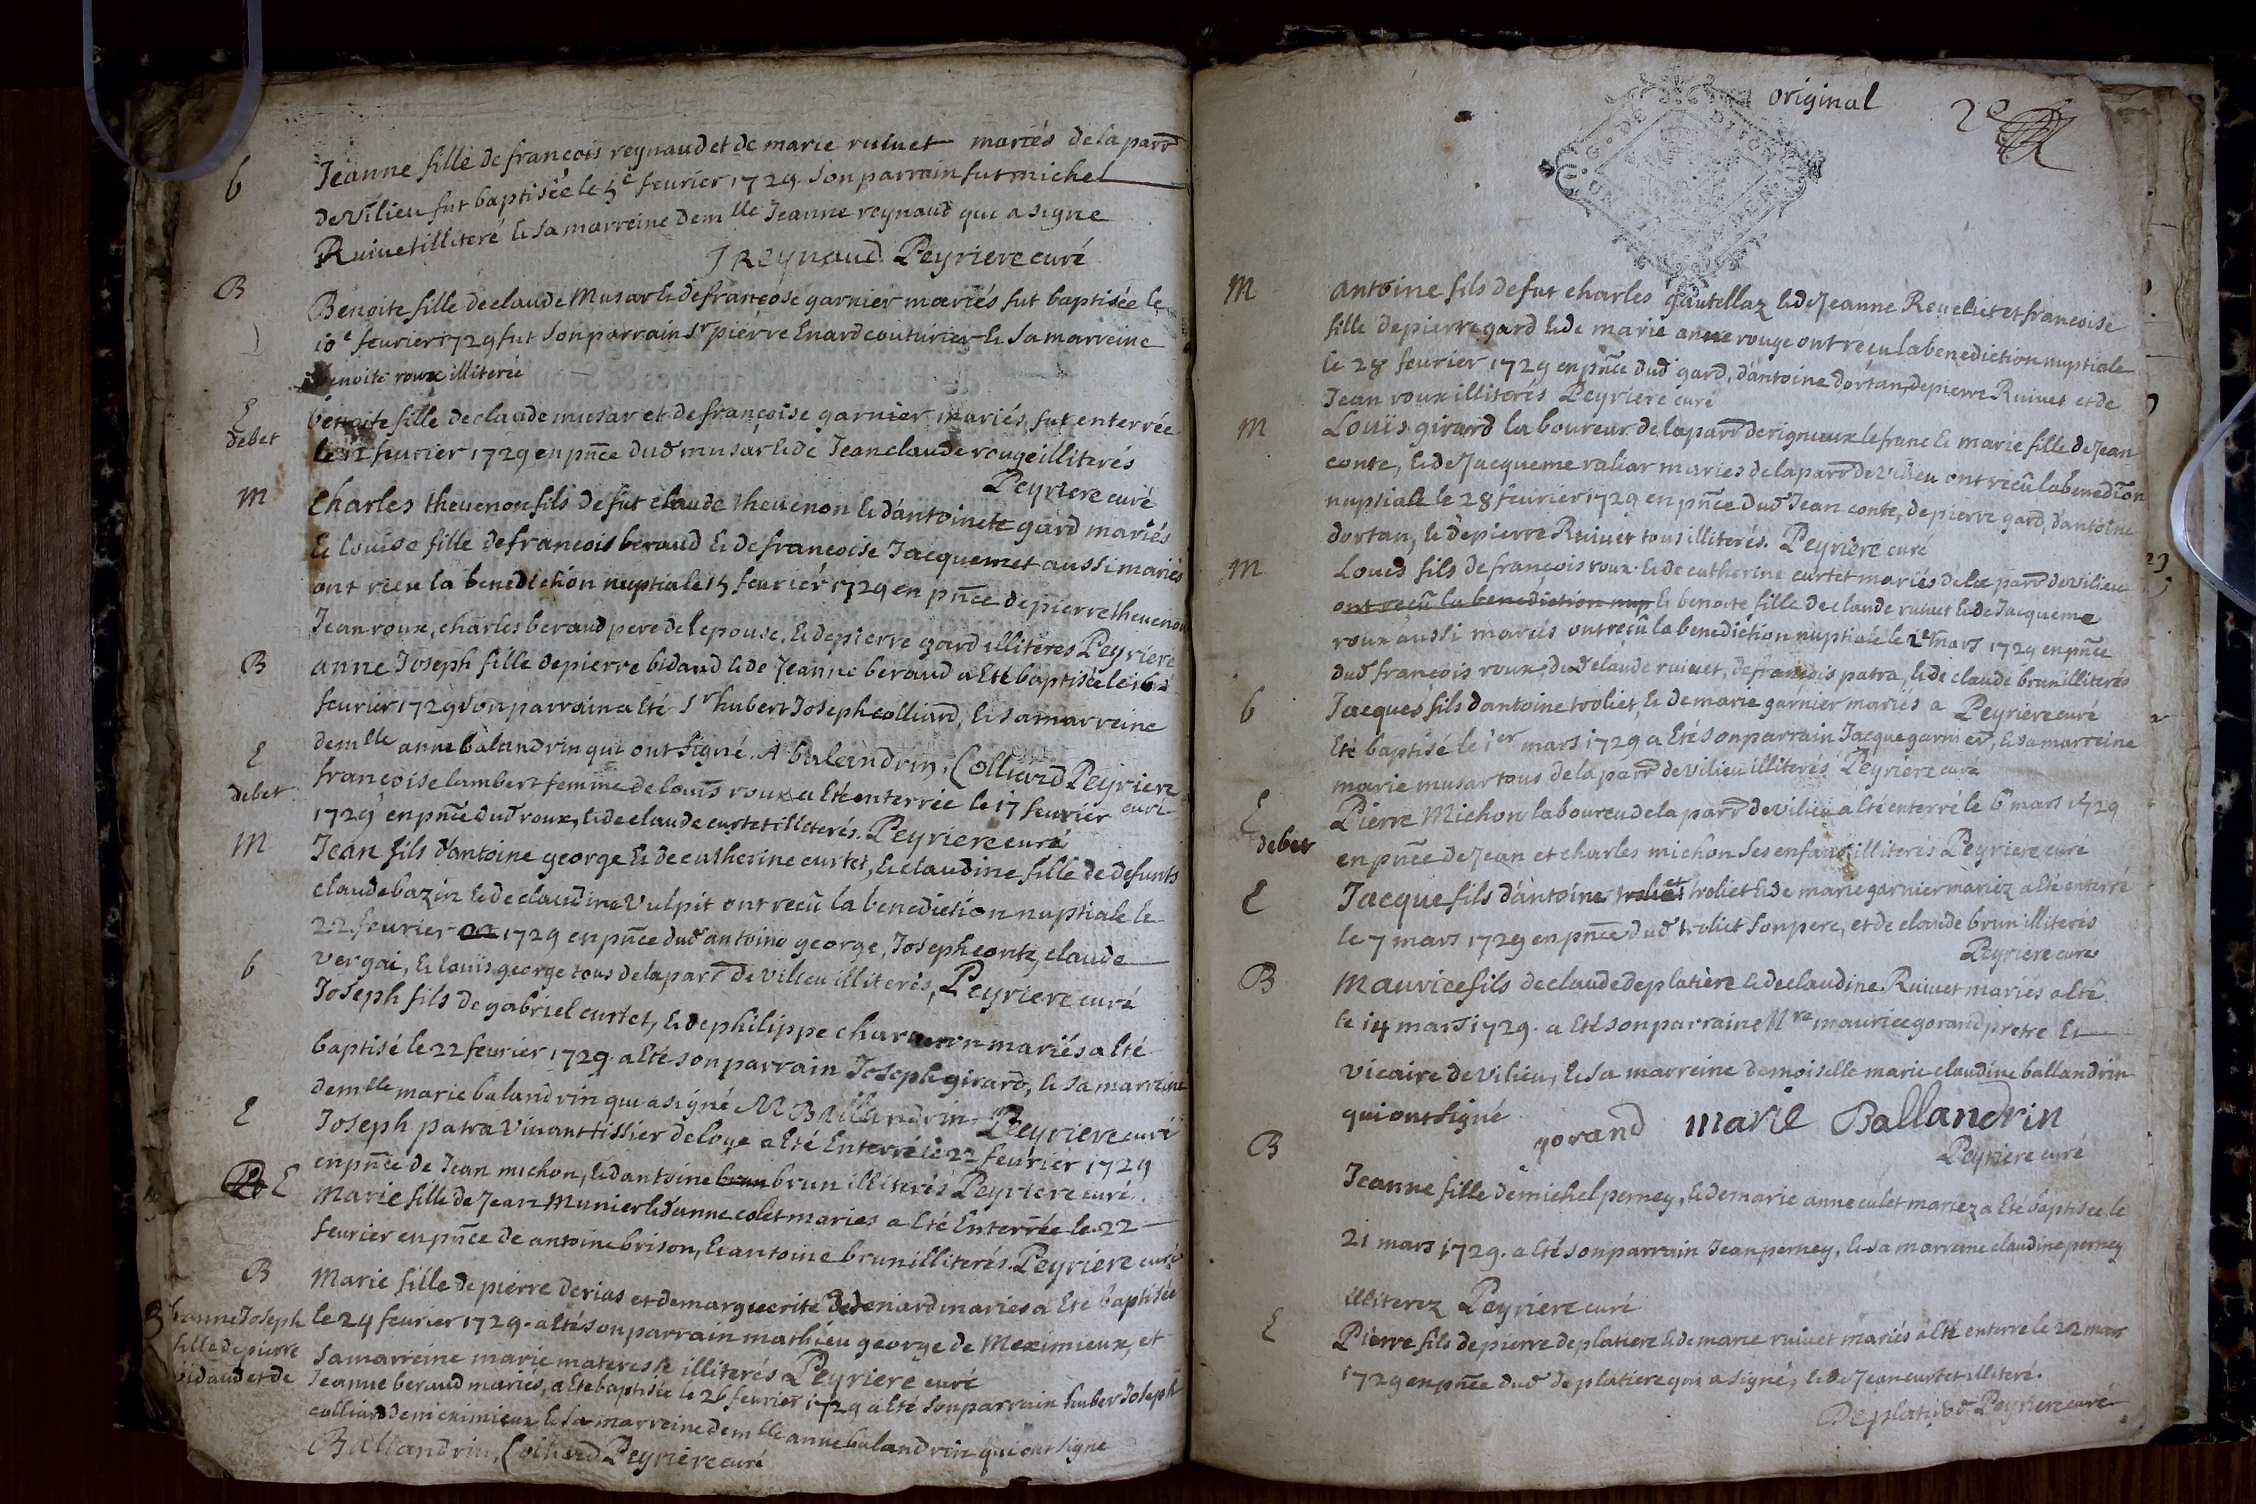 b
Jeanne fille de françois reynaud et de marie ruivet mariés de la parr
de vilieu fut baptisée le 5e feurier 1729. Son parrain fut michel
Ruivet illiteré & sa marreine demlle Jeanne reynaud qui a signe
J Reynaud Peyriere curé
B
Benoite fille de claude Musar & de francoise garnier mariés fut baptisée le
10e feurier 1729 fut son parrain Sr pierre Enard couturier & sa marreine
benoite roux illiterée
E
debet
benoite fille de claude musar et de françoise garnier mariés, fut enterrée
le 12 feurier 1729 en pnce dud musar & de Jean claude rouge illiterés
Peyriere curé
M
Charles theuenon fils de fut claude theuenon & d'antoinete gard mariés
& louise fille de francois beraud & de francoise Jacquemet aussi mariés
ont recu la benediction nuptiale 15 feurier 1729 en pnce de pierre theuenon
Jean roux, charles beraud pere de lepouse, & de pierre gard illiteres Peyriere
B
anne Joseph fille de pierre bidaud & de Jeanne beraud a Eté baptisée le 16
feurier 1729 son parrain a Eté Sr hubert Joseph colliard, & sa marreine
demlle anne balandrin qui ont signé. A balandrin, Colliard Peyriere
curé
E
debet
francoise lambert femme de louis roux a Eté enterrée le 17 feurier
1729 en pnce dud roux, & de claude curtet illiterés. Peyriere curé
M
Jean fils d'antoine george & de catherine curtet, & claudine fille de defunts
claude bazin & de claudine Vulpit ont recû la benediction nuptiale le
22 feurier 1729 en pnce dud antoine george, Joseph conte, claude
vergai, & louis george tous de la parr de vilieu illiterés, Peyriere curé
b
Joseph fils de gabriel curtet, & de philippe mariés a Eté
baptisé le 22 feurier 1729. a Eté son parrain Joseph girard, & sa marreine
demlle marie balandrin qui a signé M Ballandrin Peyriere curé
E
Joseph patra vivant tissier de loye a Eté Enterré le 22 feurier 1729
en pnce de Jean michon, & d'antoine brun brun illiterés Peyriere curé
E
Marie fille de Jean Munier & d'anne colet mariés a Eté Enterrée le 22
feurier en pnce de antoine brison, & antoine brun illiterés. Peyriere curé
B
Marie fille de pierre derias et de marguerite mariés a Eté baptisée
le 24 feurier 1729. a Eté son parrain mathieu george de Meximieux, et
sa marreine marie materesse illiterés Peyriere curé
B
anne Joseph
fille de pierre
bidaud et de
Jeanne beraud mariés, a Eté baptisée le 26 feurier 1729 a Eté son parrain huber Joseph
colliard de meximieux & sa marreine demlle anne balandrin qui ont signe
Ballandrin, Colliard Peyriere curé
original
2e
M
Antoine fils de fut charles gautellaz & de Jeanne Reueliet et francoise
fille de pierre gard & de marie anne rouge ont recu la benediction nuptiale
le 28 feurier 1729 en pnce dud gard, d'antoine dortan, de pierre Ruivet et de
Jean roux illiterés Peyriere curé
M
Louis girard laboureur de la parr de rigneux le franc & marie fille de Jean
conte, & de Jacqueme raliar mariés de la parr de vilieu ont recû la benedon
nuptiale le 28 feurier 1729 en pnce dud Jean conte, de pierre gard, d'antoine
dortan, & de pierre Ruivet tous illiterés. Peyriere curé
M
Loued fils de françois roux & de catherine curtet mariés de la parr de vilieu
ont recû la benediction nup & benoite fille de claude ruiuet & de Jacqueme
roux aussi mariés ont recû la benediction nuptiale le 2e mars 1729 en pnce
dud françois roux, dud claude ruiuet, de françois patra, & de claude brun illiterés
Peyriere curé
b
Jacques fils d'antoine troliet, & de marie garnier mariés a
Eté baptisé le 1er mars 1729 a Eté son parrain Jacque garnier, & sa marreine
marie musar tous de la parr de vilieu illiterés Peyriere curé
E
debet
Pierre Michon laboureu de la parr de vilieu a Eté enterré le 6 mars 1729
en pnce de Jean et charles michon ses enfans illiterés Peyriere curé
E
Jacque fils d'antoine troliet troliet & de marie garnier mariez a Eté enterré
le 7 mars 1729 en pnce dud troliet son pere, et de claude brun illiteres
Peyriere curé
B
Maurice fils de claude deplatière & de claudine Ruiuet maries a Eté
le 14 mars 1729. a Eté son parraine Mre maurice gorand pretre Et
vicaire de vilieu, & sa marreine demoiselle marie claudine ballandrin
qui ont signé gorand marie Ballandrin
Peyriere curé
B
Jeanne fille de michel perney, & de marie anne culet mariez a Eté baptisee le
21 mars 1729. a Eté son parrain Jean perney, & sa marreine claudine perney
illiterez Peyriere curé
E
Pierre fils de pierre deplatiere & de marie ruiuet mariés a Eté enterre le 22 mars
1729 en pnce dud deplatiere qui a signé, & de Jean curtet illiteré.
Deplatiere Peyriere curé